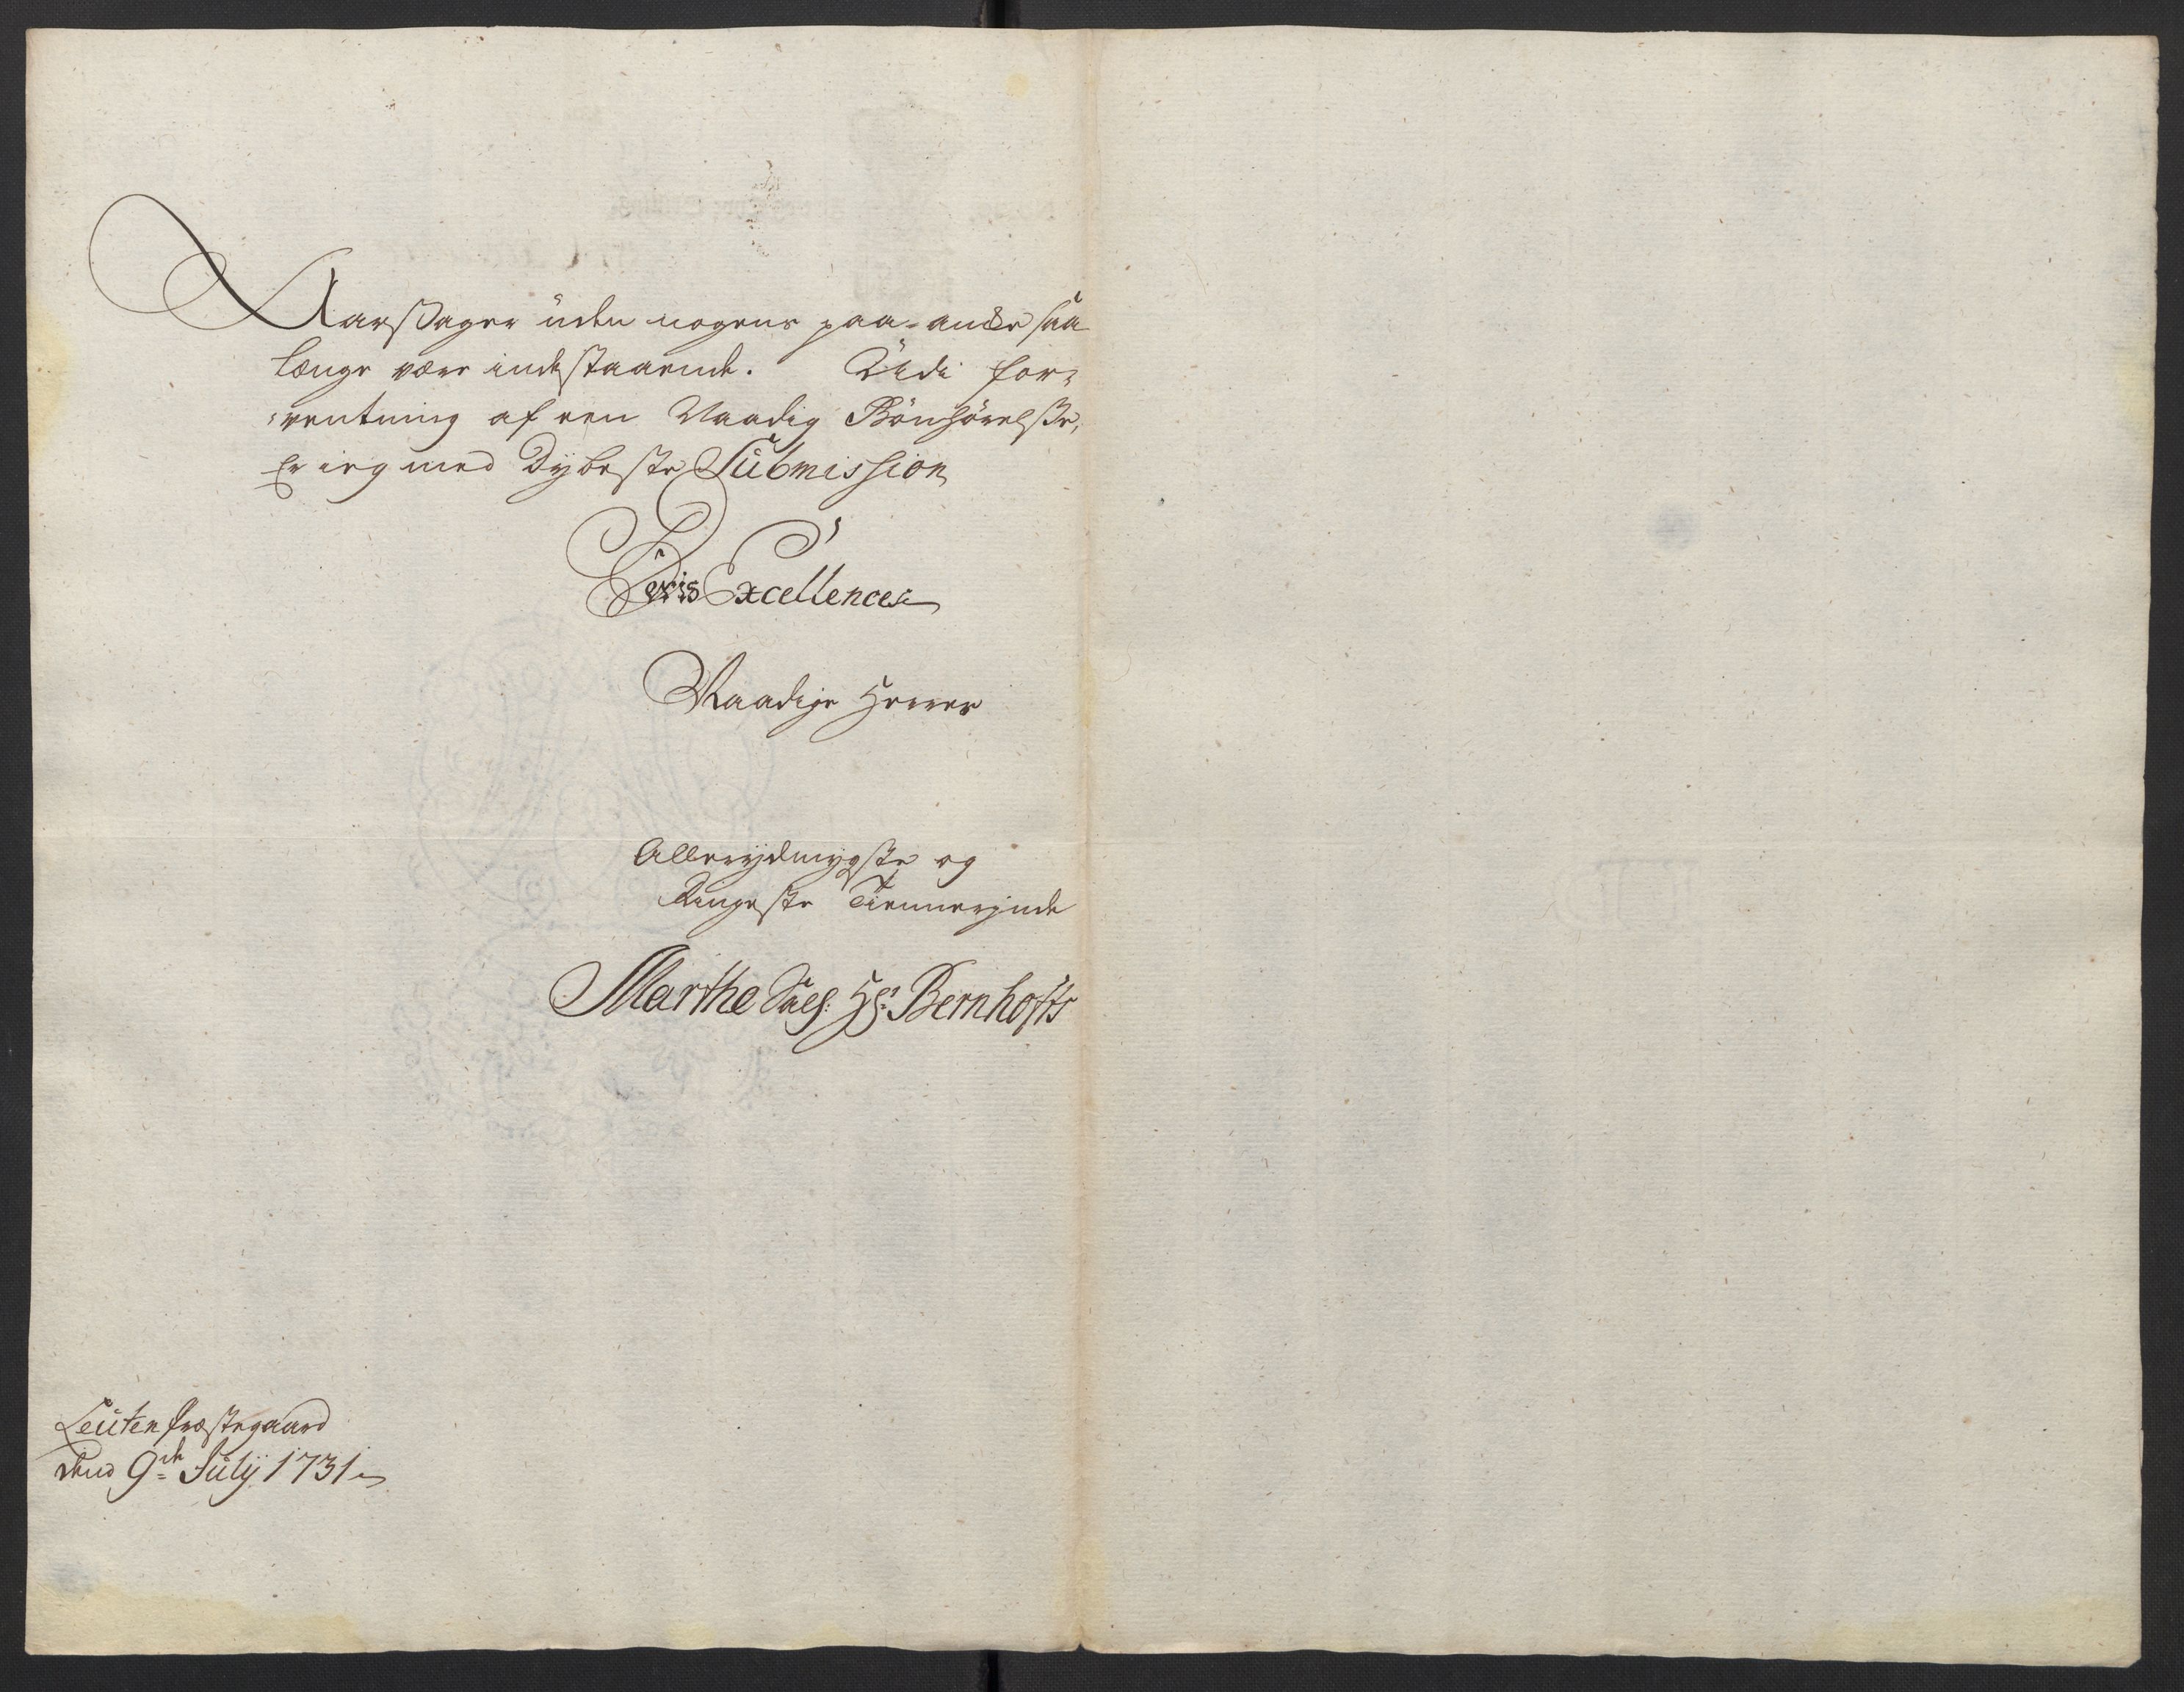 Aarsager uden nogens paa-ancke saa
længe være indestaaende. Udi for-
-ventning af een Naadig Bönhörelsse,
Er ieg med Dybeste Submission
Deris Excellences
Naadige Herres
Allerydmygste og
Ringeste Tiennerjnde
Marthe Sal: Hr: Bernhofts
Leuten Præstegaard
dend 9de July 1731